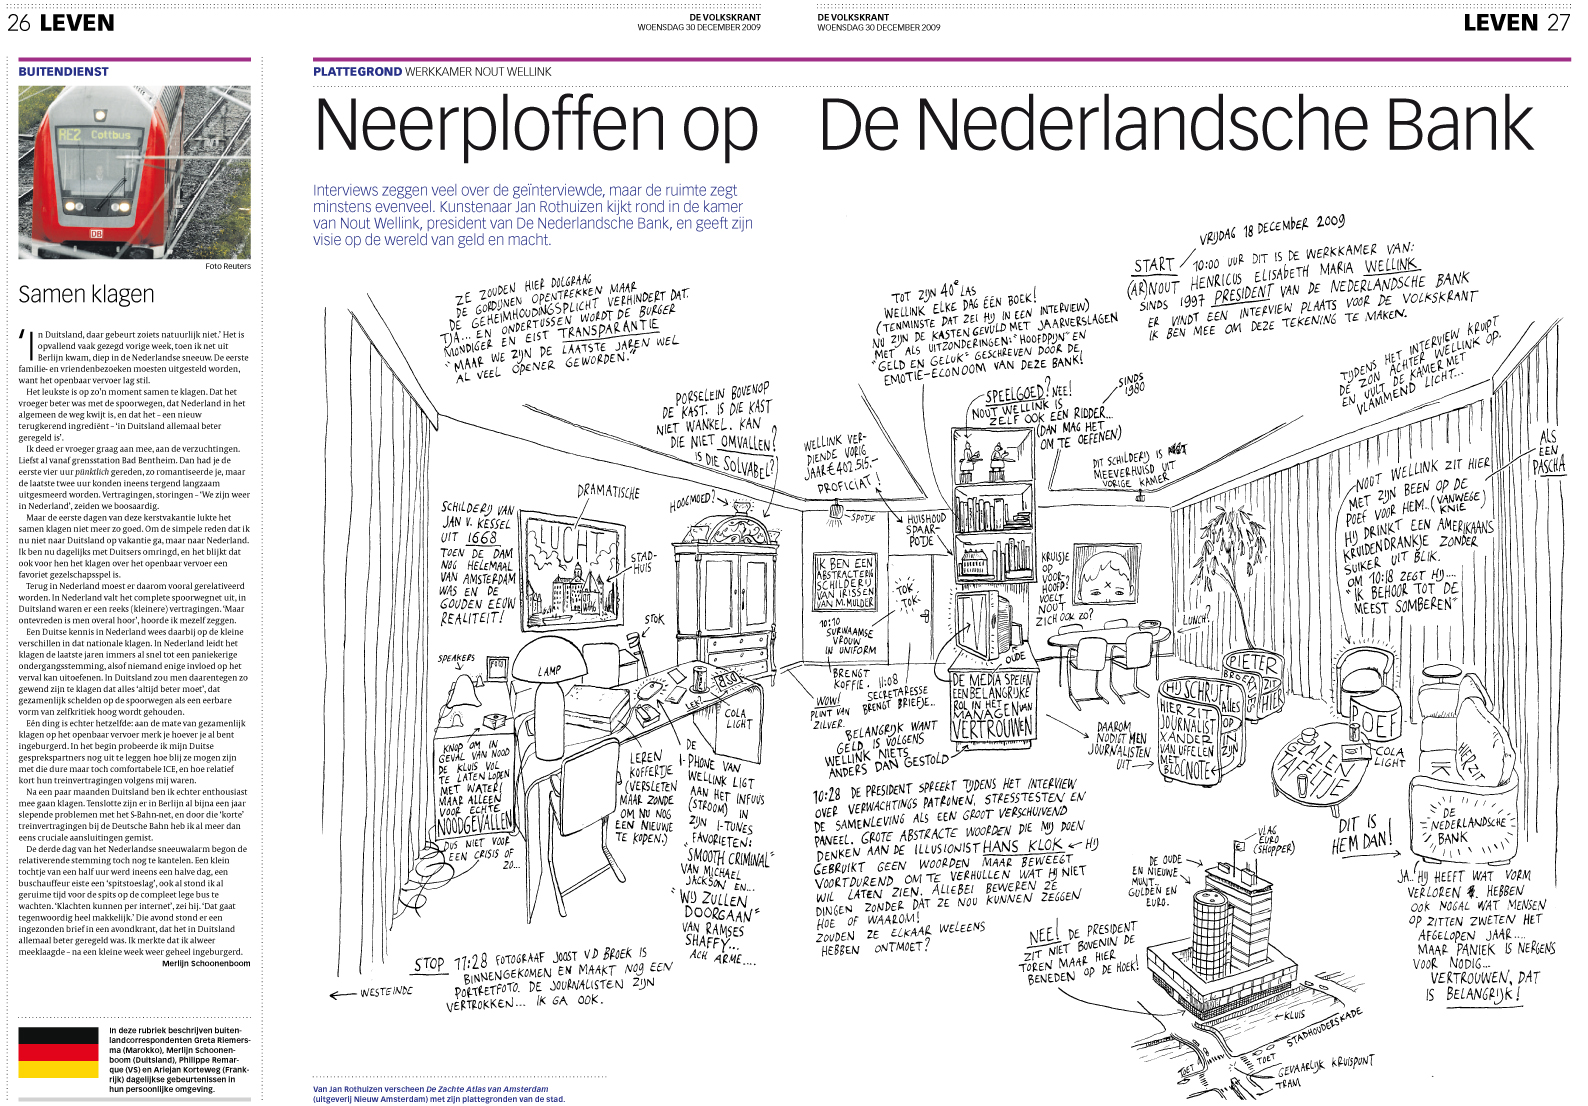 26 LEVEN
DE VOLKSKRANT
WOENSDAG 30 DECEMBER 2009
DE VOLKSKRANT
WOENSDAG 30 DECEMBER 2009
LEVEN 27
BUITENDIENST
RE2 Cottbus
DB
Foto Reuters
Samen klagen
‘In Duitsland, daar gebeurt zoiets natuurlijk niet.’ Het is
opvallend vaak gezegd vorige week, toen ik net uit
Berlijn kwam, diep in de Nederlandse sneeuw. De eerste
familie- en vriendenbezoeken moesten uitgesteld worden,
want het openbaar vervoer lag stil.
Het leukste is op zo’n moment samen te klagen. Dat het
vroeger beter was met de spoorwegen, dat Nederland in het
algemeen de weg kwijt is, en dat het – een nieuw
terugkerend ingrediënt – ‘in Duitsland allemaal beter
geregeld is’.
Ik deed er vroeger graag aan mee, aan de verzuchtingen.
Liefst al vanaf grensstation Bad Bentheim. Dan had je de
eerste vier uur pünktlich gereden, zo romantiseerde je, maar
de laatste twee uur konden ineens tergend langzaam
uitgesmeerd worden. Vertragingen, storingen – ‘We zijn weer
in Nederland’, zeiden we boosaardig.
Maar de eerste dagen van deze kerstvakantie lukte het
samen klagen niet meer zo goed. Om de simpele reden dat ik
nu niet naar Duitsland op vakantie ga, maar naar Nederland.
Ik ben nu dagelijks met Duitsers omringd, en het blijkt dat
ook voor hen het klagen over het openbaar vervoer een
favoriet gezelschapsspel is.
Terug in Nederland moest er daarom vooral gerelativeerd
worden. In Nederland valt het complete spoorwegnet uit, in
Duitsland waren er een reeks (kleinere) vertragingen. ‘Maar
ontevreden is men overal hoor’, hoorde ik mezelf zeggen.
Een Duitse kennis in Nederland wees daarbij op de kleine
verschillen in dat nationale klagen. In Nederland leidt het
klagen de laatste jaren immers al snel tot een paniekerige
ondergangsstemming, alsof niemand enige invloed op het
verval kan uitoefenen. In Duitsland zou men daarentegen zo
gewend zijn te klagen dat alles ‘altijd beter moet’, dat
gezamenlijk schelden op de spoorwegen als een eerbare
vorm van zelfkritiek hoog wordt gehouden.
Eén ding is echter hetzelfde: aan de mate van gezamenlijk
klagen op het openbaar vervoer merk je hoever je al bent
ingeburgerd. In het begin probeerde ik mijn Duitse
gesprekspartners nog uit te leggen hoe blij ze mogen zijn
met die dure maar toch comfortabele ICE, en hoe relatief
kort hun treinvertragingen volgens mij waren.
Na een paar maanden Duitsland ben ik echter enthousiast
mee gaan klagen. Tenslotte zijn er in Berlijn al bijna een jaar
slepende problemen met het S-Bahn-net, en door die ‘korte’
treinvertragingen bij de Deutsche Bahn heb ik al meer dan
eens cruciale aansluitingen gemist.
De derde dag van het Nederlandse sneeuwalarm begon de
relativerende stemming toch nog te kantelen. Een klein
tochtje van een half uur werd ineens een halve dag, een
buschauffeur eiste een ‘spitstoeslag’, ook al stond ik al
geruime tijd voor de spits op de compleet lege bus te
wachten. ‘Klachten kunnen per internet’, zei hij. ‘Dat gaat
tegenwoordig heel makkelijk.’ Die avond stond er een
ingezonden brief in een avondkrant, dat het in Duitsland
allemaal beter geregeld was. Ik merkte dat ik alweer
meeklaagde – na een kleine week weer geheel ingeburgerd.
Merlijn Schoonenboom
In deze rubriek beschrijven buiten-
landcorrespondenten Greta Riemers-
ma (Marokko), Merlijn Schoonen-
boom (Duitsland), Philippe Remar-
que (VS) en Ariejan Korteweg (Frank-
rijk) dagelijkse gebeurtenissen in
hun persoonlijke omgeving.
PLATTEGROND WERKKAMER NOUT WELLINK
Neerploffen op De Nederlandsche Bank
Interviews zeggen veel over de geïnterviewde, maar de ruimte zegt
minstens evenveel. Kunstenaar Jan Rothuizen kijkt rond in de kamer
van Nout Wellink, president van De Nederlandsche Bank, en geeft zijn
visie op de wereld van geld en macht.
VRIJDAG 18 DECEMBER 2009
START 10:00 UUR DIT IS DE WERKKAMER VAN:
(AR)NOUT HENRICUS ELISABETH MARIA WELLINK
SINDS 1997 PRESIDENT VAN DE NEDERLANDSCHE BANK
ER VINDT EEN INTERVIEW PLAATS VOOR DE VOLKSKRANT
IK BEN MEE OM DEZE TEKENING TE MAKEN.
ZE ZOUDEN HIER DOLGRAAG
DE GORDIJNEN OPENTREKKEN MAAR
DE GEHEIMHOUDINGSPLICHT VERHINDERT DAT.
TJA... EN ONDERTUSSEN WORDT DE BURGER
MONDIGER EN EIST TRANSPARANTIE
"MAAR WE ZIJN DE LAATSTE JAREN WEL
AL VEEL OPENER GEWORDEN."
TOT ZIJN 40e LAS
WELLINK ELKE DAG ÉÉN BOEK!
(TENMINSTE DAT ZEI HIJ IN EEN INTERVIEW)
NU ZIJN DE KASTEN GEVULD MET JAARVERSLAGEN
MET ALS UITZONDERINGEN: "HOOFDPIJN" EN
"GELD EN GELUK" GESCHREVEN DOOR DE
EMOTIE-ECONOOM VAN DEZE BANK!
TIJDENS HET INTERVIEW KRUIPT
DE ZON ACHTER WELLINK OP.
EN VULT DE KAMER MET
VLAMMEND LICHT...
PORSELEIN BOVENOP
DE KAST. IS DIE KAST
NIET WANKEL. KAN
DIE NIET OMVALLEN?
IS DIE SOLVABEL?
SPEELGOED? NEE!
NOUT WELLINK IS
ZELF OOK EEN RIDDER...
(DAN MAG HET
OM TE OEFENEN)
SINDS
1980
WELLINK VER-
DIENDE VORIG
JAAR € 402.515.-
PROFICIAT!
DIT SCHILDERIJ IS
MEEVERHUISD UIT
VORIGE KAMER
ALS
EEN
PASCHA
NOUT WELLINK ZIT HIER
MET ZIJN BEEN OP DE
POEF VOOR HEM.. (VANWEGE
KNIE)
HIJ DRINKT EEN AMERIKAANS
KRUIDENDRANKJE ZONDER
SUIKER UIT BLIK.
OM 10:18 ZEGT HIJ....
"IK BEHOOR TOT DE
MEEST SOMBEREN"
SCHILDERIJ VAN
JAN V. KESSEL
UIT 1668
TOEN DE DAM
NOG HELEMAAL
VAN AMSTERDAM
WAS EN DE
GOUDEN EEUW
REALITEIT!
DRAMATISCHE
LUCHT
STAD-
HUIS
HOOGMOED?
SPOTJE
HUISHOUD
SPAAR-
POTJE
IK BEN EEN
ABSTRACTERIG
SCHILDERIJ
VAN IRISSEN
VAN M. MULDER
TOK
TOK
KRUISJE
OP
VOOR-
HOOFD?
VOELT
NOUT
ZICH OOK ZO?
LUNCH?
STOK
SPEAKERS
FOTO
LAMP
LEK?
COLA
LIGHT
10:10
SURINAAMSE
VROUW
IN UNIFORM
BRENGT
KOFFIE.
11:08
SECRETARESSE
BRENGT BRIEFJE...
WOW!
PLINT VAN
ZILVER.
OUDE
DE MEDIA SPELEN
EEN BELANGRIJKE
ROL IN HET
MANAGEN VAN
VERTROUWEN
BELANGRIJK WANT
GELD IS VOLGENS
WELLINK NIETS
ANDERS DAN GESTOLD
DAAROM
NODIGT MEN
JOURNALISTEN
UIT
HIJ SCHRIJFT ALLES OP
HIER ZIT
JOURNALIST
XANDER
VAN UFFELEN
MET
BLOCNOTE
PIETER
BROERTJES ZIT
HIER
POEF
GLAZEN
TAFELTJE
COLA
LIGHT
DE
NEDERLANDSCHE
BANK
KNOP OM IN
GEVAL VAN NOOD
DE KLUIS VOL
TE LATEN LOPEN
MET WATER!
MAAR ALLEEN
VOOR ECHTE
NOODGEVALLEN
DUS NIET VOOR
EEN CRISIS OF
ZO...
LEREN
KOFFERTJE
(VERSLETEN
MAAR ZONDE
OM NU NOG
EEN NIEUWE
TE KOPEN.)
DE
I-PHONE VAN
WELLINK LIGT
AAN HET INFUUS
(STROOM) IN
ZIJN I-TUNES
FAVORIETEN:
"SMOOTH CRIMINAL"
VAN MICHAEL
JACKSON EN...
"WIJ ZULLEN
DOORGAAN"
VAN RAMSES
SHAFFY...
ACH ARME....
10:28 DE PRESIDENT SPREEKT TIJDENS HET INTERVIEW
OVER VERWACHTINGS PATRONEN, STRESSTESTEN EN
DE SAMENLEVING ALS EEN GROOT VERSCHUIVEND
PANEEL. GROTE ABSTRACTE WOORDEN DIE MIJ DOEN
DENKEN AAN DE ILLUSIONIST HANS KLOK ← HIJ
GEBRUIKT GEEN WOORDEN MAAR BEWEEGT
VOORTDUREND OM TE VERHULLEN WAT HIJ NIET
WIL LATEN ZIEN. ALLEBEI BEWEREN ZE
DINGEN ZONDER DAT ZE NOU KUNNEN ZEGGEN
HOE OF WAAROM!
ZOUDEN ZE ELKAAR WELEENS
HEBBEN ONTMOET?
DIT IS
HEM DAN!
JA..! HIJ HEEFT WAT VORM
VERLOREN HEBBEN
OOK NOGAL WAT MENSEN
OP ZITTEN ZWETEN HET
AFGELOPEN JAAR....
MAAR PANIEK IS NERGENS
VOOR NODIG...
VERTROUWEN, DAT
IS BELANGRIJK!
VLAG
EURO
(SHOPPER)
DE OUDE
EN NIEUWE
MUNT..
GULDEN EN
EURO.
NEE! DE PRESIDENT
ZIT NIET BOVENIN DE
TOREN MAAR HIER
BENEDEN OP DE HOEK!
KLUIS
STADHOUDERSKADE
TOET
TOET
GEVAARLIJK KRUISPUNT
TRAM
STOP 11:28 FOTOGRAAF JOOST V.D BROEK IS
BINNENGEKOMEN EN MAAKT NOG EEN
PORTRETFOTO. DE JOURNALISTEN ZIJN
VERTROKKEN... IK GA OOK.
← WESTEINDE
Van Jan Rothuizen verscheen De Zachte Atlas van Amsterdam
(uitgeverij Nieuw Amsterdam) met zijn plattegronden van de stad.